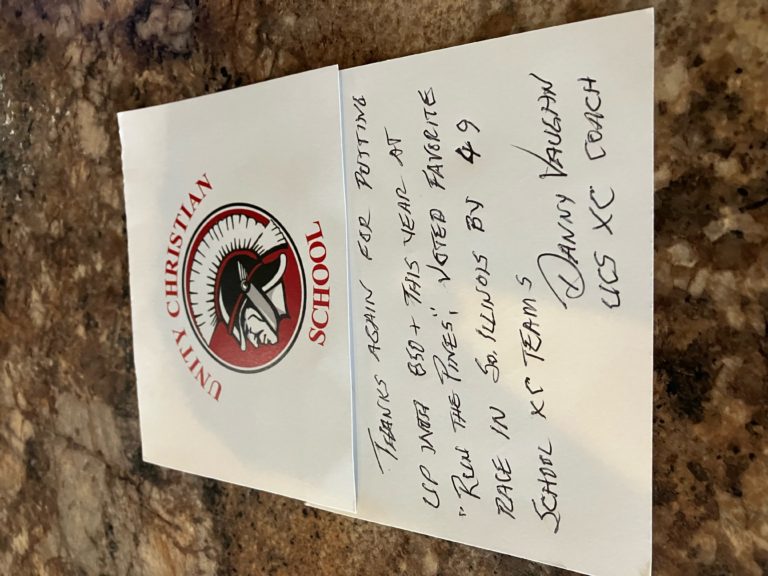 UNITY CHRISTIAN
SCHOOL
THANKS AGAIN FOR PUTTING
UP WITH 850+ THIS YEAR AT
"RUN THE PINES", VOTED FAVORITE
RACE IN SO. ILLINOIS BY 49
SCHOOL XC TEAMS
DANNY VAUGHN
UCS XC COACH